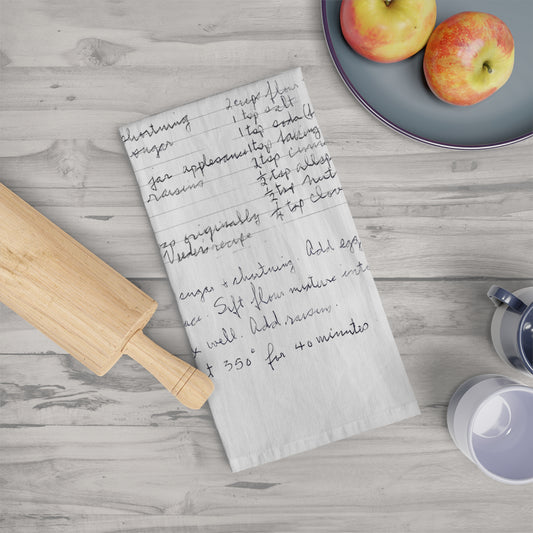 2 cups flour
shortning 1 tsp salt
sugar 1 tsp soda
jar applesauce 1 tsp baking
raisins 2 tsp
½ tsp
½ tsp
originally ¼ tsp
recipe
sugar + shortning. Add egg,
Sift flour mixture into
well. Add raisins.
350° for 40 minutes